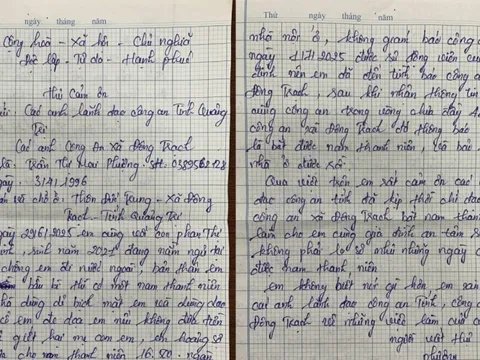 ngày tháng năm
Cộng hoà - Xã hội - Chủ nghĩa
Độc lập - Tự do - Hạnh phúc
Thư Cảm ơn
Các anh lãnh đạo công an Tỉnh Quảng
Trị
Các anh Công An Xã Đông Trạch
Trần Thị Mai Phương - SĐT:
3/4/1996
chỗ ở: Thôn Đức Trung - Xã Đông
Trạch - Tỉnh Quảng Trị
29/6/2025 em cùng với con phan Thế
sinh năm 2021 đang nằm ngủ tại
chồng em đi nước ngoài, bản thân em
bầu bì thì có một nam thanh niên
dùng dao bịt mặt em và dùng dao
cổ em đe doạ em nếu không đưa tiền
giết hai mẹ con em, em hoảng sợ
cho nam thanh niên
Thứ ngày tháng năm
nhà nơi ở, không giám báo công an
ngày 1/7/2025 được sự động viên của
đình nên em đã đến trình báo công an
Đông Trạch, sau khi nhận thông tin
cùng công an trong vòng chưa đầy
công an xã Đông Trạch đã thông báo
là bắt được nam thanh niên, và bảo
nhà ở được rồi.
Qua viết trên em rất cảm ơn các
đạo công an tỉnh đã kịp thời chỉ đạo
công an xã Đông Trạch bắt nam thanh
làm cho em cùng gia đình an tâm
không phải lo sợ như những ngày
được nam thanh niên
em không biết nói gì hơn, em xin
các anh lãnh đạo công an Tỉnh, công
Đông Trạch vì những việc làm của
người viết Thư